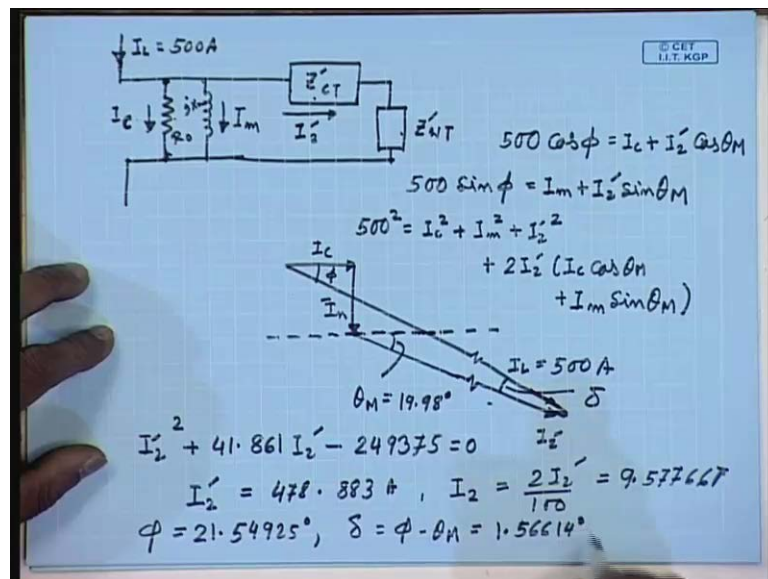 I_L = 500A
© CET
I.I.T. KGP
Z'_CT
I_c
R_0
jx_m
I_m
I_2'
Z'_WT
500 cosφ = I_c + I_2' cosθ_M
500 sinφ = I_m + I_2' sinθ_M
500² = I_c² + I_m² + I_2'²
+ 2I_2' (I_c cosθ_M
+ I_m sinθ_M)
I_c
φ
I_m
I_L = 500 A
θ_M = 19.98°
δ
I_2'
I_2'² + 41.861 I_2' - 249375 = 0
I_2' = 478.883 A, I_2 = 2I_2'/100 = 9.57766A
φ = 21.54925°, δ = φ - θ_M = 1.56614°